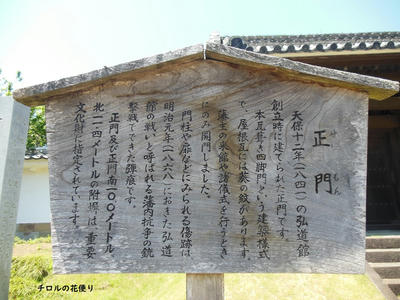 正門
せいもん
天保十二年(一八四一)の弘道館
創立時に建てられた正門です。
本瓦葺き四脚門という建築様式
で、屋根瓦には葵の紋があります。
藩主の来館や諸儀式を行うとき
にのみ開門しました。
門柱や扉などにみられる傷跡は
明治元年(一八六八)におきた弘道
館の戦いと呼ばれる藩内抗争の銃
撃戦でできた弾痕です。
正門及び正門南一〇〇メートル、
北一一四メートルの附塀は、重要
文化財に指定されています。
チロルの花便り